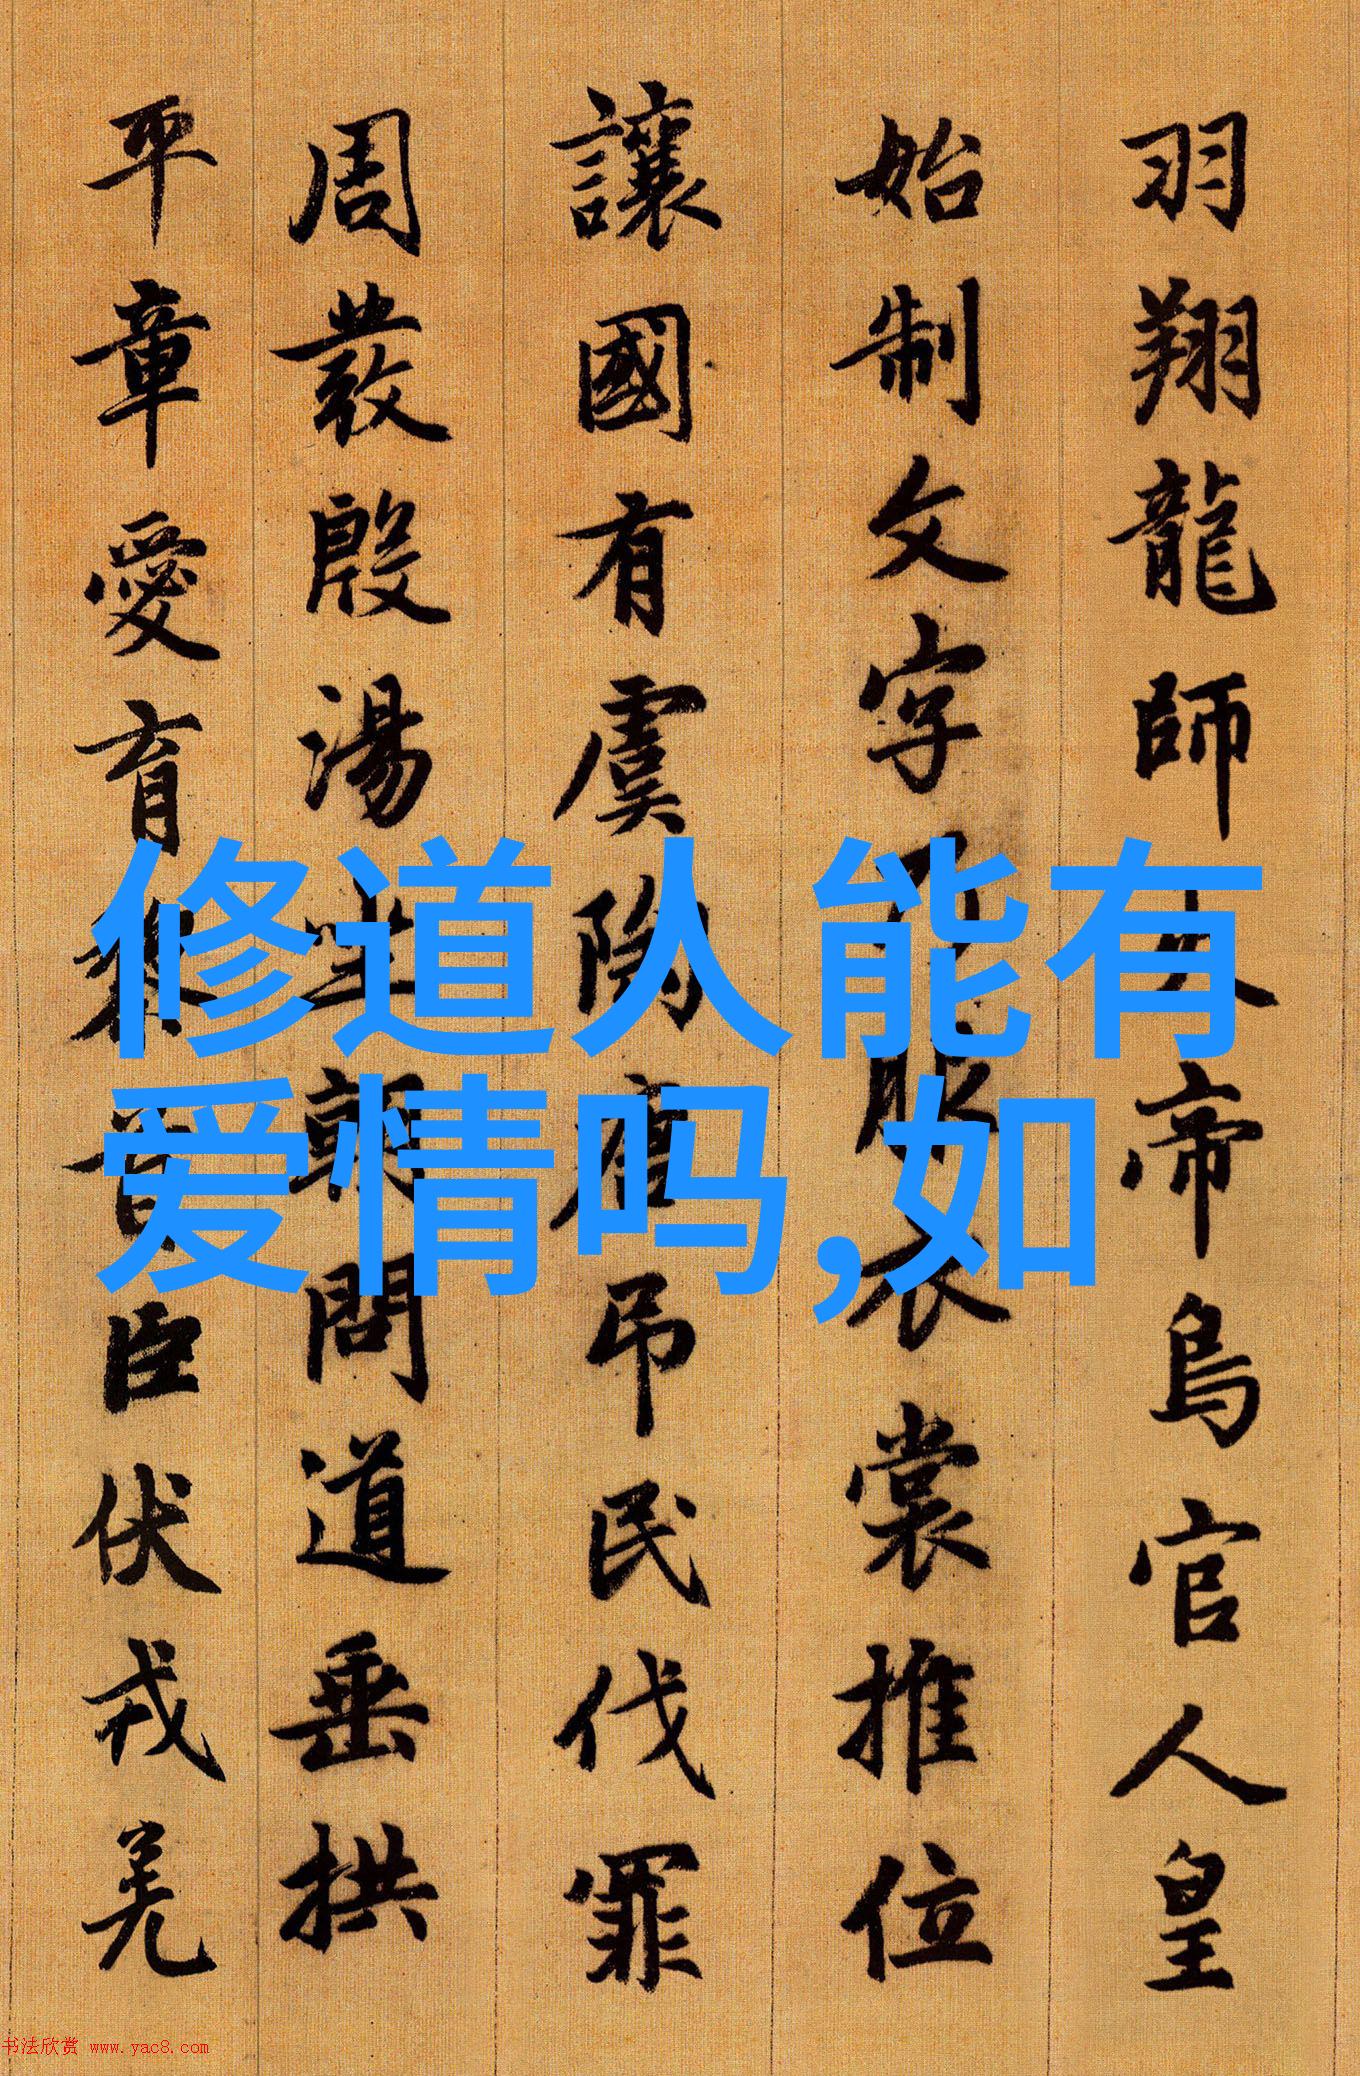 羽翔龍師火帝鳥官人皇
始制文字乃服衣裳推位
讓國有虞陶唐吊民伐罪
周發殷湯坐朝問道垂拱
平章愛育黎首臣伏戎羌
修道人能有
爱情吗,如
书法欣赏 www.yac8.com